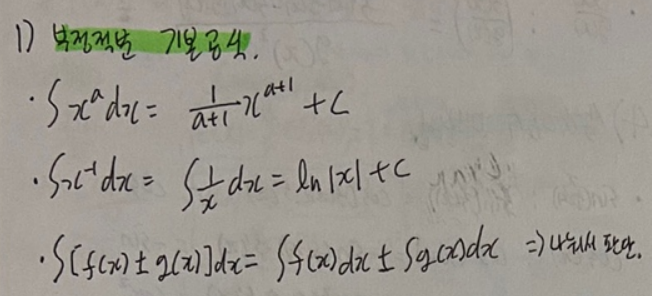 1) 부정적분 기본공식.
· ∫x^a dx = 1/(a+1) x^(a+1) + C
· ∫x^-1 dx = ∫1/x dx = ln|x| + C
· ∫[f(x) ± g(x)]dx = ∫f(x)dx ± ∫g(x)dx ⇒ 나눠서 판단.